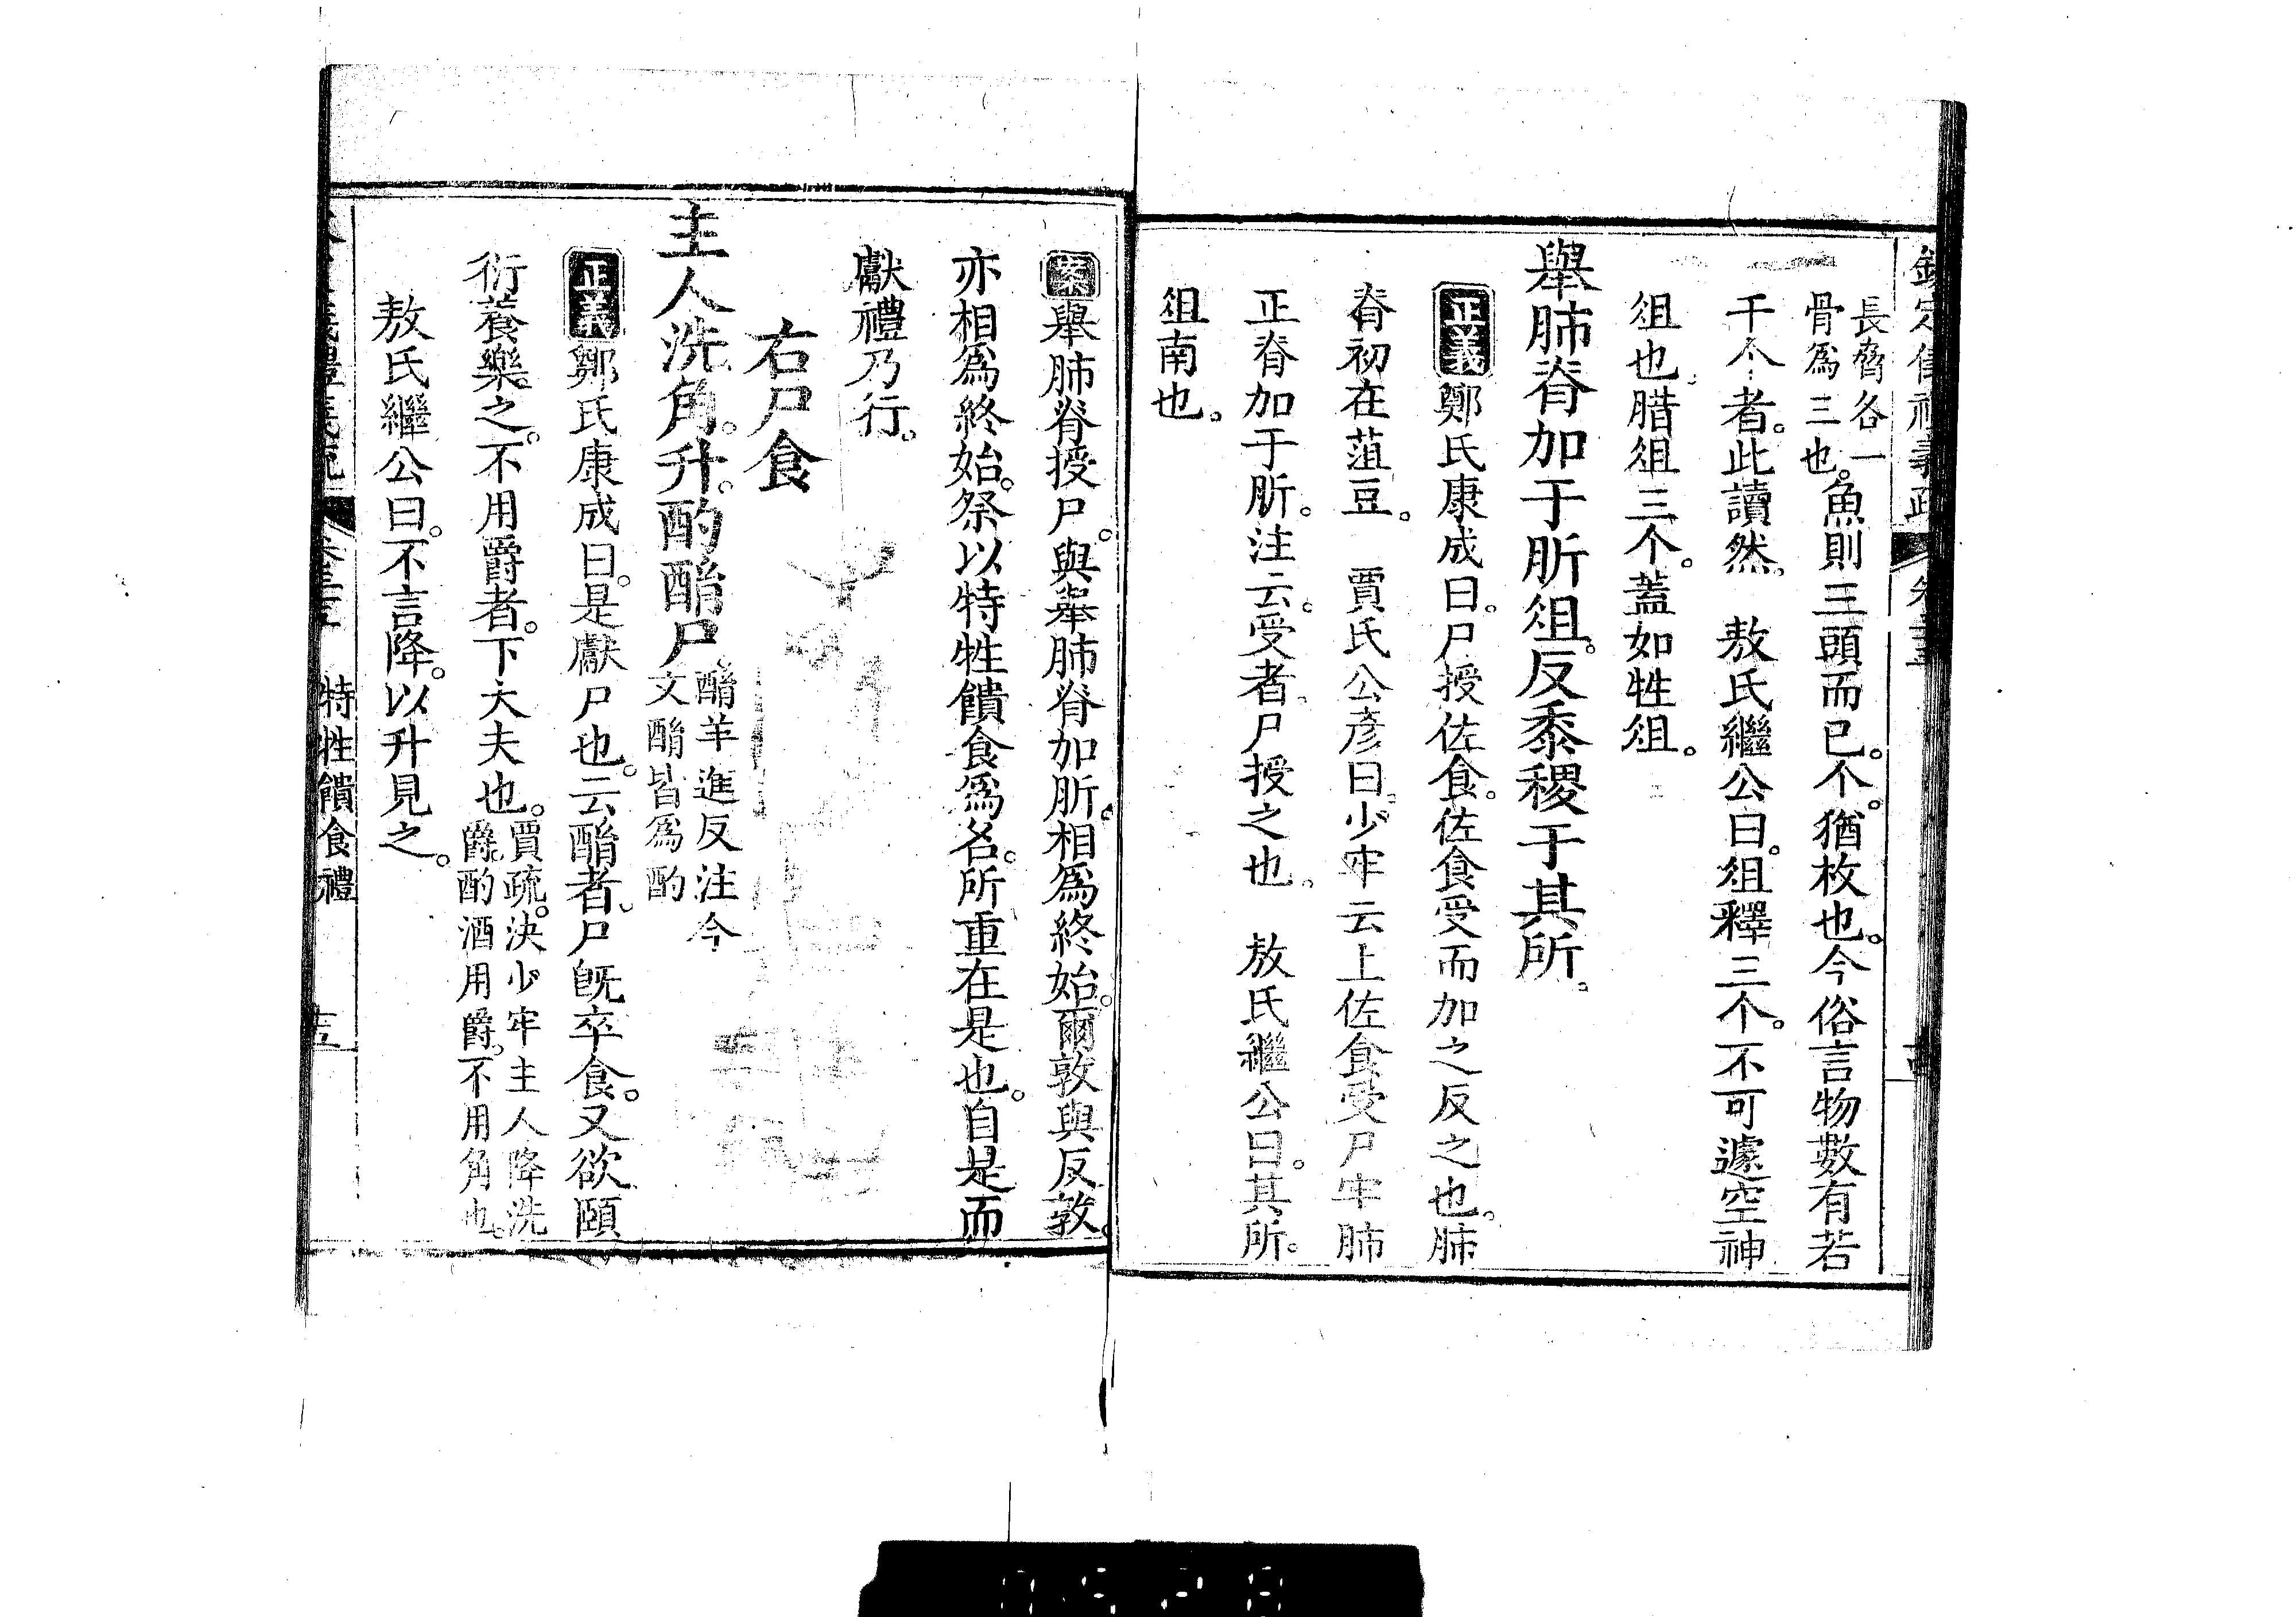 欽定儀禮義疏 卷三五
長脅各一
骨爲三也。魚則三頭而已。个。猶枚也。今俗言物數有若
干个者。此讀然。 敖氏繼公曰。俎釋三个。不可遽空神
俎也。腊俎三个。蓋如牲俎。
舉肺脊加于肵俎。反黍稷于其所。
正義鄭氏康成曰。尸授佐食。佐食受而加之反之也。肺
脊初在菹豆。 賈氏公彦曰。少牢云上佐食受尸牢肺
正脊加于肵。注云。受者。尸授之也。 敖氏繼公曰。其所。
俎南也。
案舉肺脊授尸。與舉肺脊加肵。相爲終始。爾敦與反敦。
亦相爲終始。祭以特牲饋食爲名。所重在是也。自是而
獻禮乃行。
右尸食
主人洗角。升。酌酳尸
酳羊進反注今
文酳皆爲酌
正義鄭氏康成曰。是獻尸也。云酳者。尸旣卒食。又欲頤
衍養樂之。不用爵者。下大夫也。
賈疏。決少牢主人降洗
爵。酌酒用爵。不用角也。
敖氏繼公曰。不言降。以升見之。
特牲饋食禮